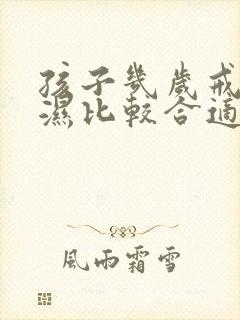 孩子幾歲戒
濕比較合適
風雨霜雪